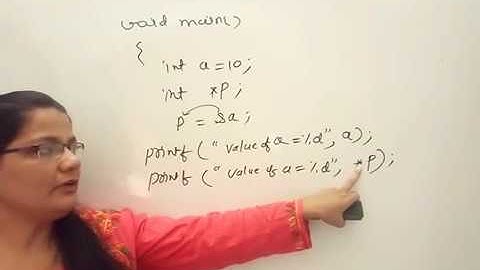 void main()
{
int a=10;
int *p;
p = &a;
printf (" value of a =%d", a);
printf (" value of a =%d", *p);